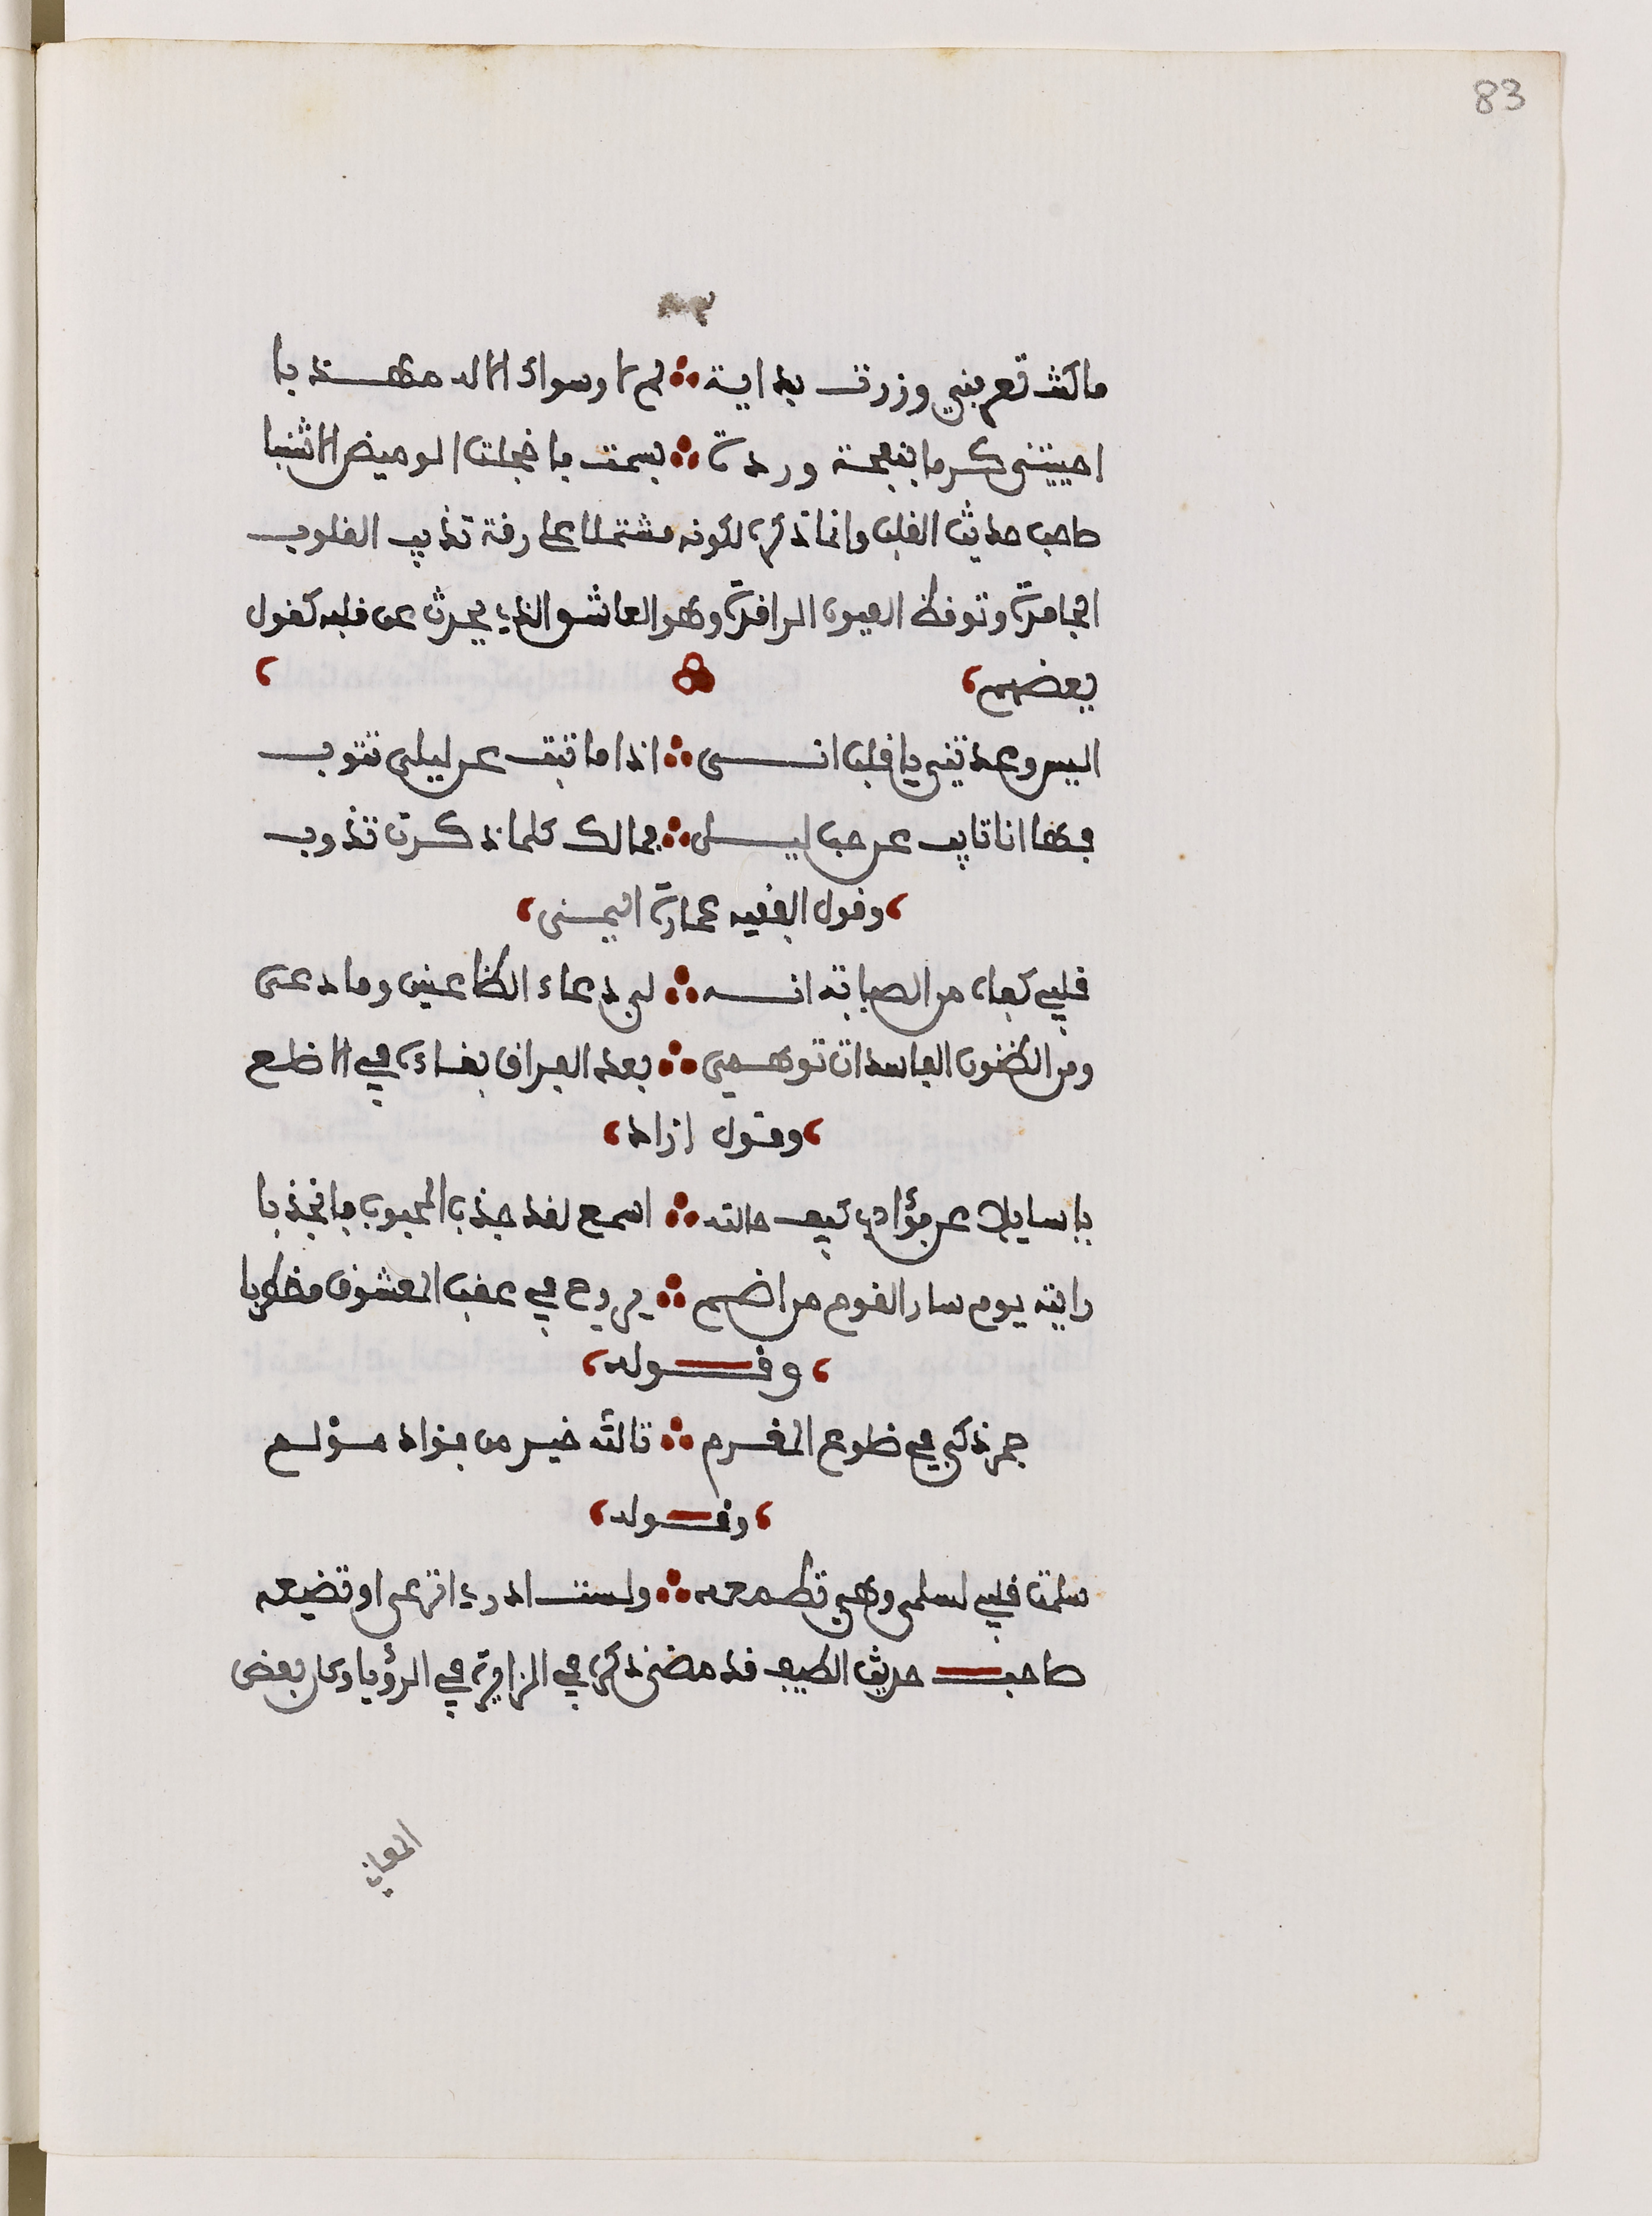 83
ما كنت تعرفني وزرت بداية لم ار سواك الاله مهذبا
احييتني كرما بنفحة وردة بسمت فاخجلت الوميض الاشنبا
صاحب حديث القلب وانما ذكره لكونه مشتملا على رقة تذيب القلوب
الجامدة وتوقظ العيون الراقدة وهو العاشق الذي يحدث عن قلبه كقول
بعضهم
اليس وعدتني يا قلب انى اذا ما تبت عن ليلى تتوب
فها انا تايب عن حب ليلى فمالك كلما ذكرت تذوب
وقول الفقيه عمارة اليمنى
قلبي كفاه من الصبابة انه لبى دعاء الظاعنين وما دعى
ومن الظنون الفاسدات توهمي بعد الفراق بقاءه في الاضلع
وقول ازاد
يا سايلا عن فؤادي كيف حالته اسمع لقد جذب المحبوب فانجذبا
رايته يوم سار القوم من اضم يروح في عقب المعشوق مضطربا
وقوله
جمر ذكي في ضلوع المغرم تالله خير من فواد مولع
وقوله
سلمت قلبي لسلمى وهي تطمعه ولست ادري اترعى او تضيعه
صاحب حديث الطيف قد مضى ذكره في الزايرة في الرؤيا وكل بعض
المعاني